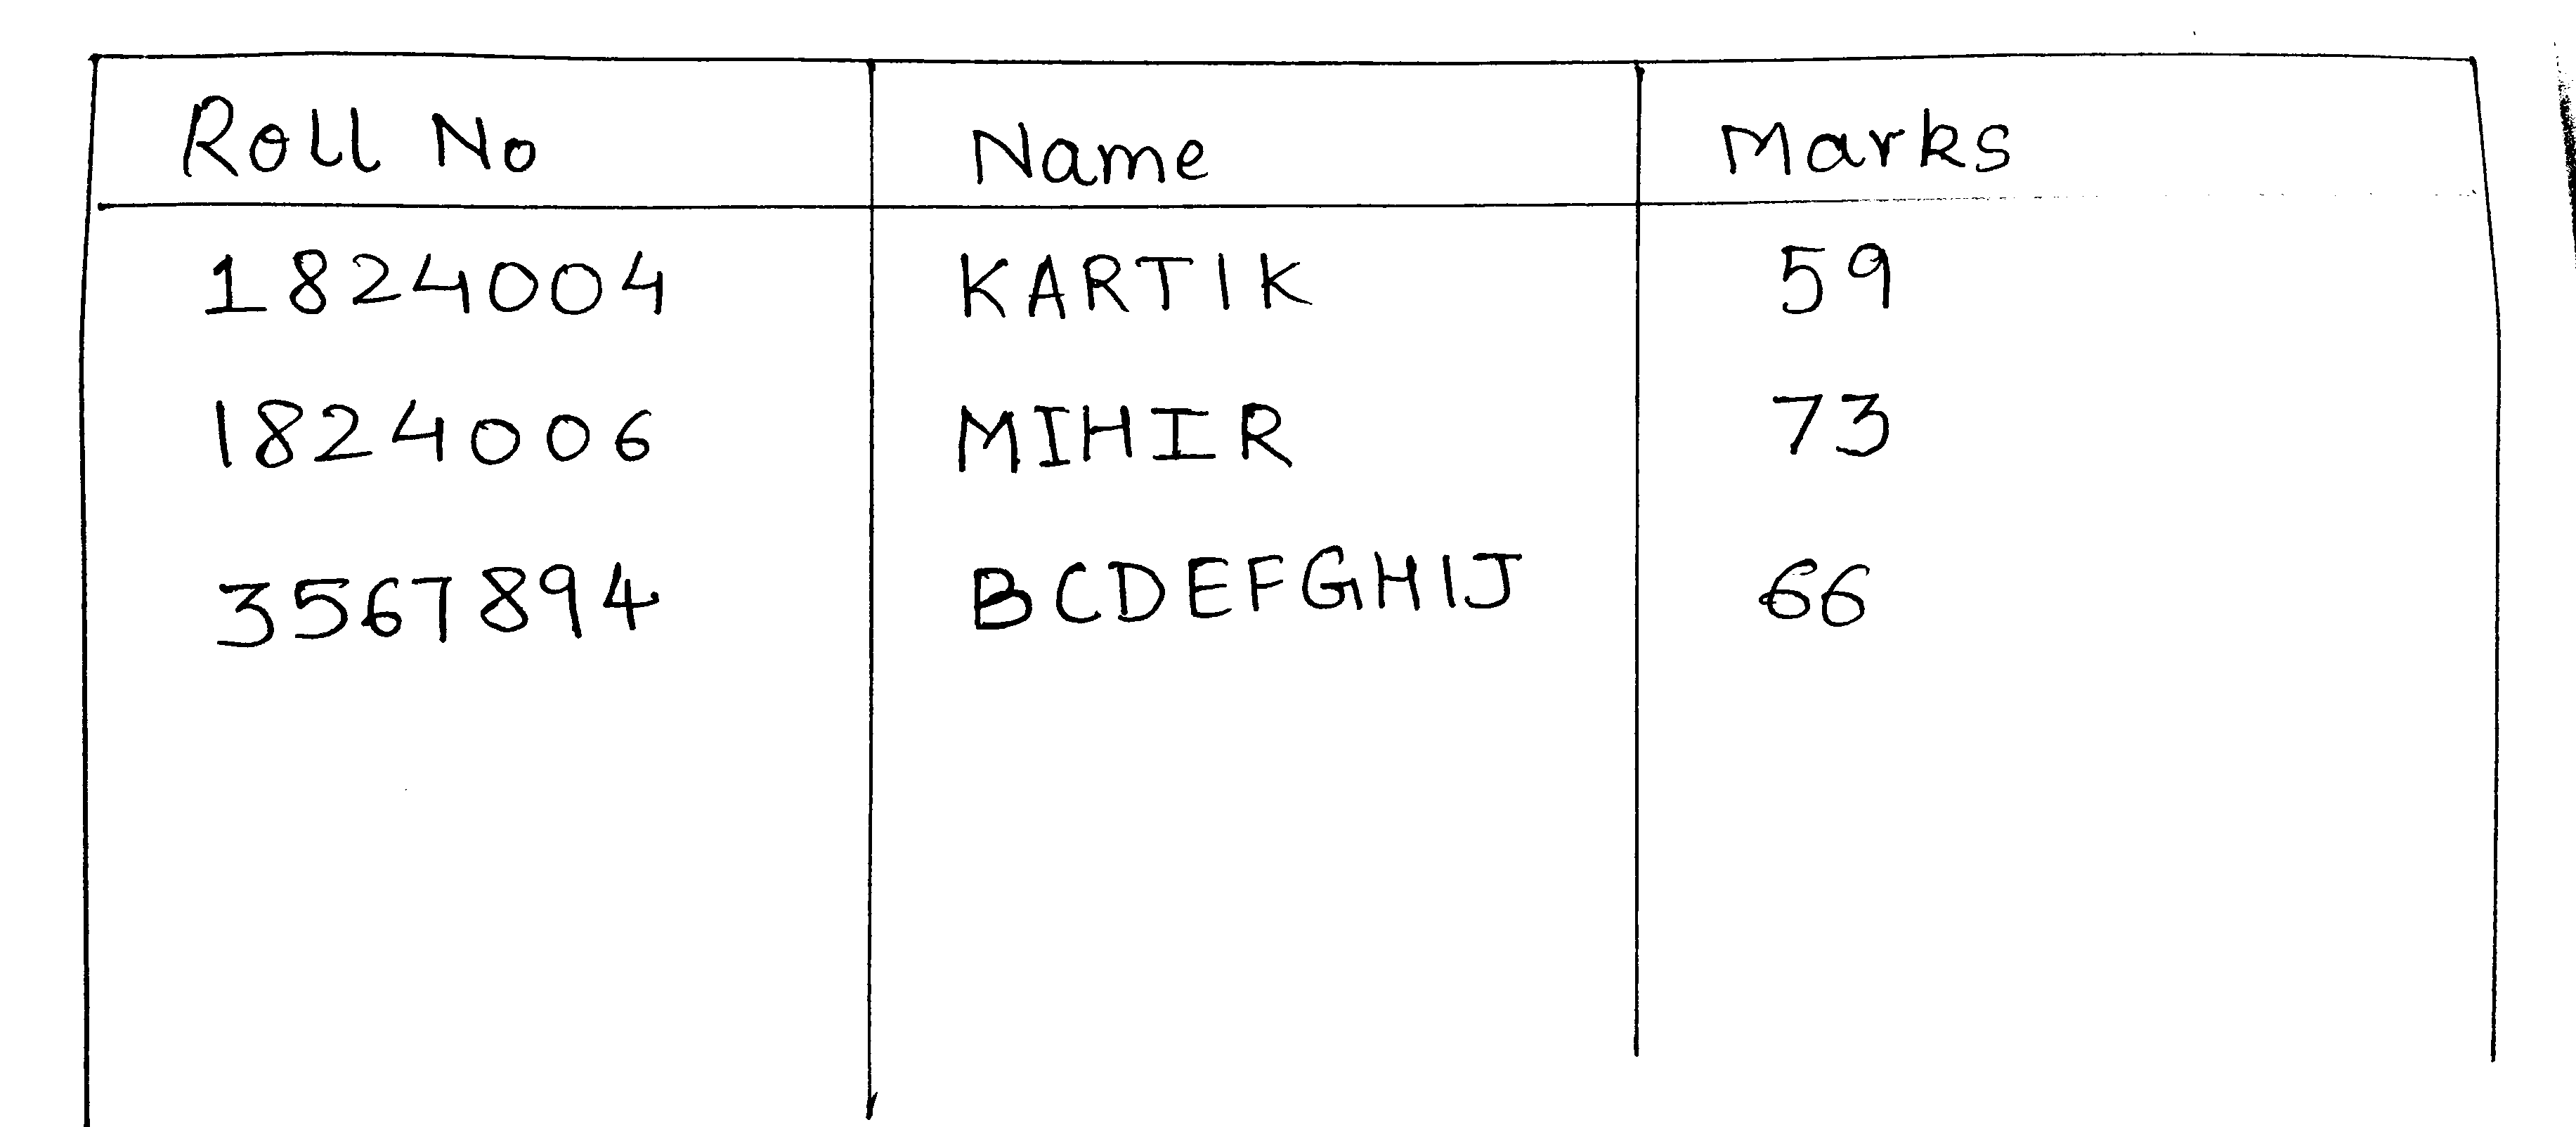 Roll No Name Marks
1824004 KARTIK 59
1824006 MIHIR 73
3567894 BCDEFGHIJ 66